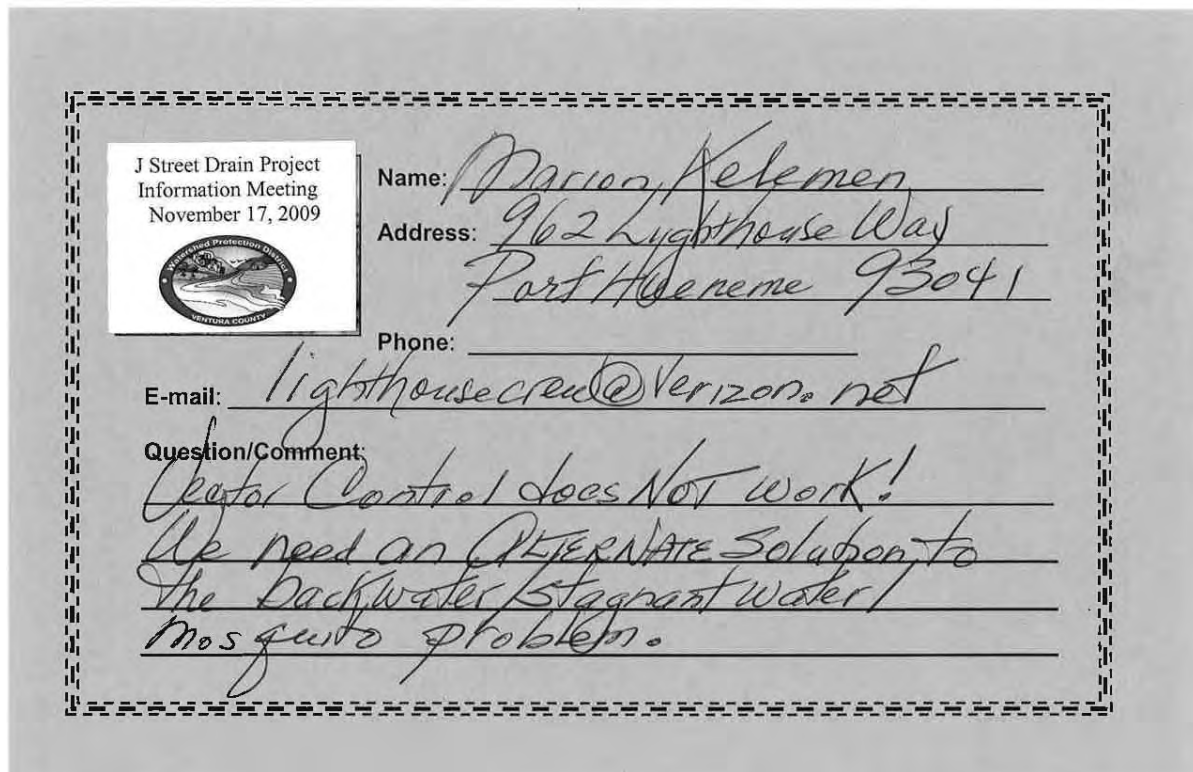 J Street Drain Project
Information Meeting
November 17, 2009
Watershed Protection District
VENTURA COUNTY
Name: Marion Kelemen
Address: 962 Lyghthouse Way
Port Hueneme 93041
Phone:
E-mail: lighthousecrew@verizon.net
Question/Comment:
Vector Control does NOT work!
We need an ALTERNATE Solution to
the backwater/stagnant water/
mosquito problem.